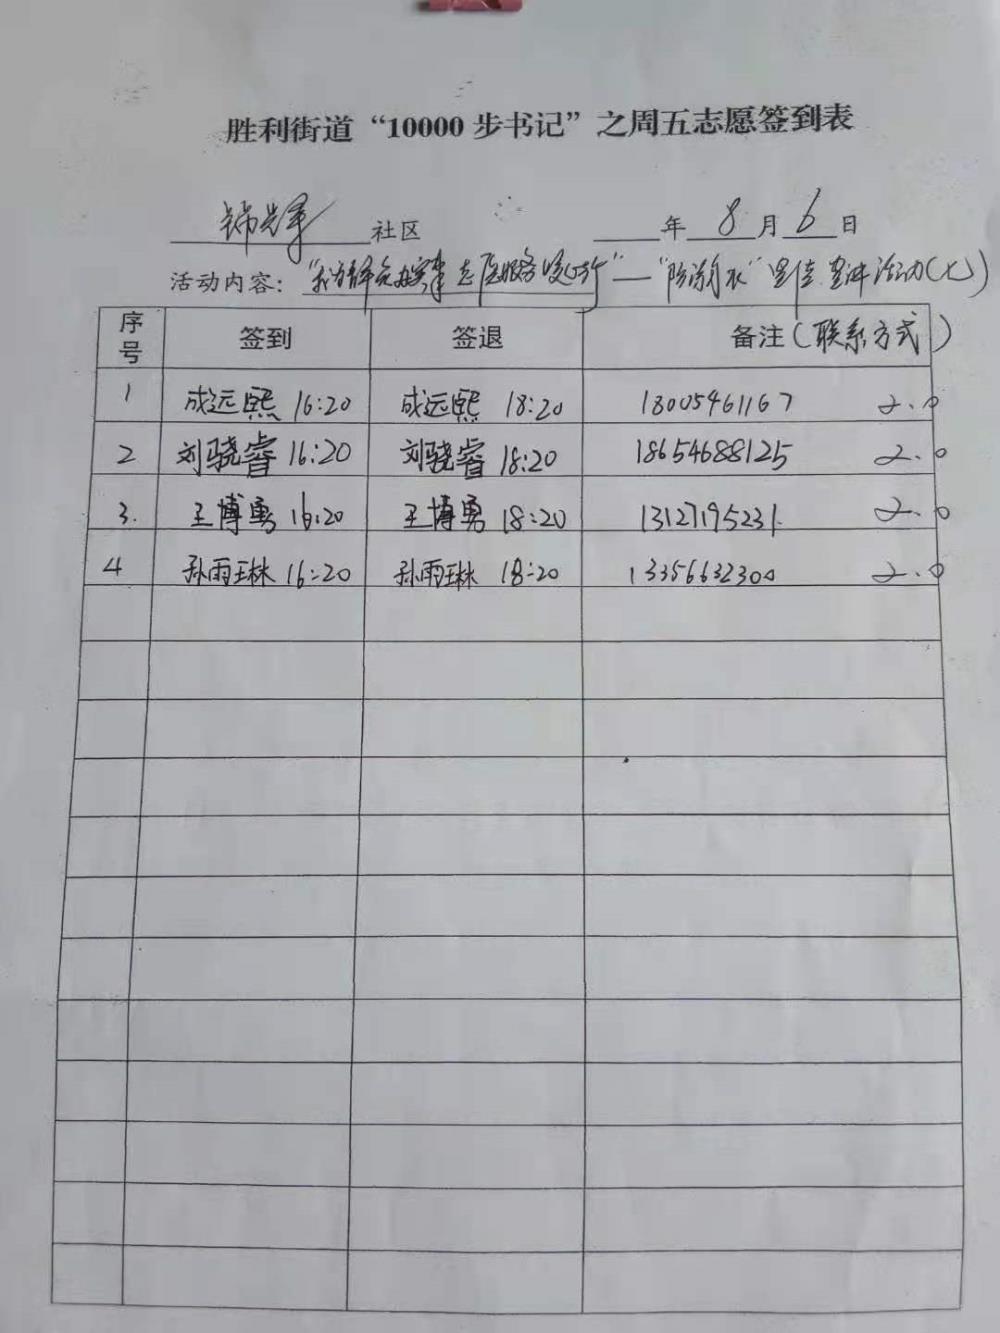 胜利街道“10000 步书记”之周五志愿签到表
锦华 社区 年 8 月 6 日
活动内容：“我为群众办实事 志愿服务暖心行”—“防溺水”宣传宣讲活动(七)
序号 签到 签退 备注(联系方式)
1 成远熙 16:20 成远熙 18:20 18005461167 2.0
2 刘骁睿 16:20 刘骁睿 18:20 18654688125 2.0
3. 王博勇 16:20 王博勇 18:20 13127195231 2.0
4 孙雨琳 16:20 孙雨琳 18:20 13356632300 2.0